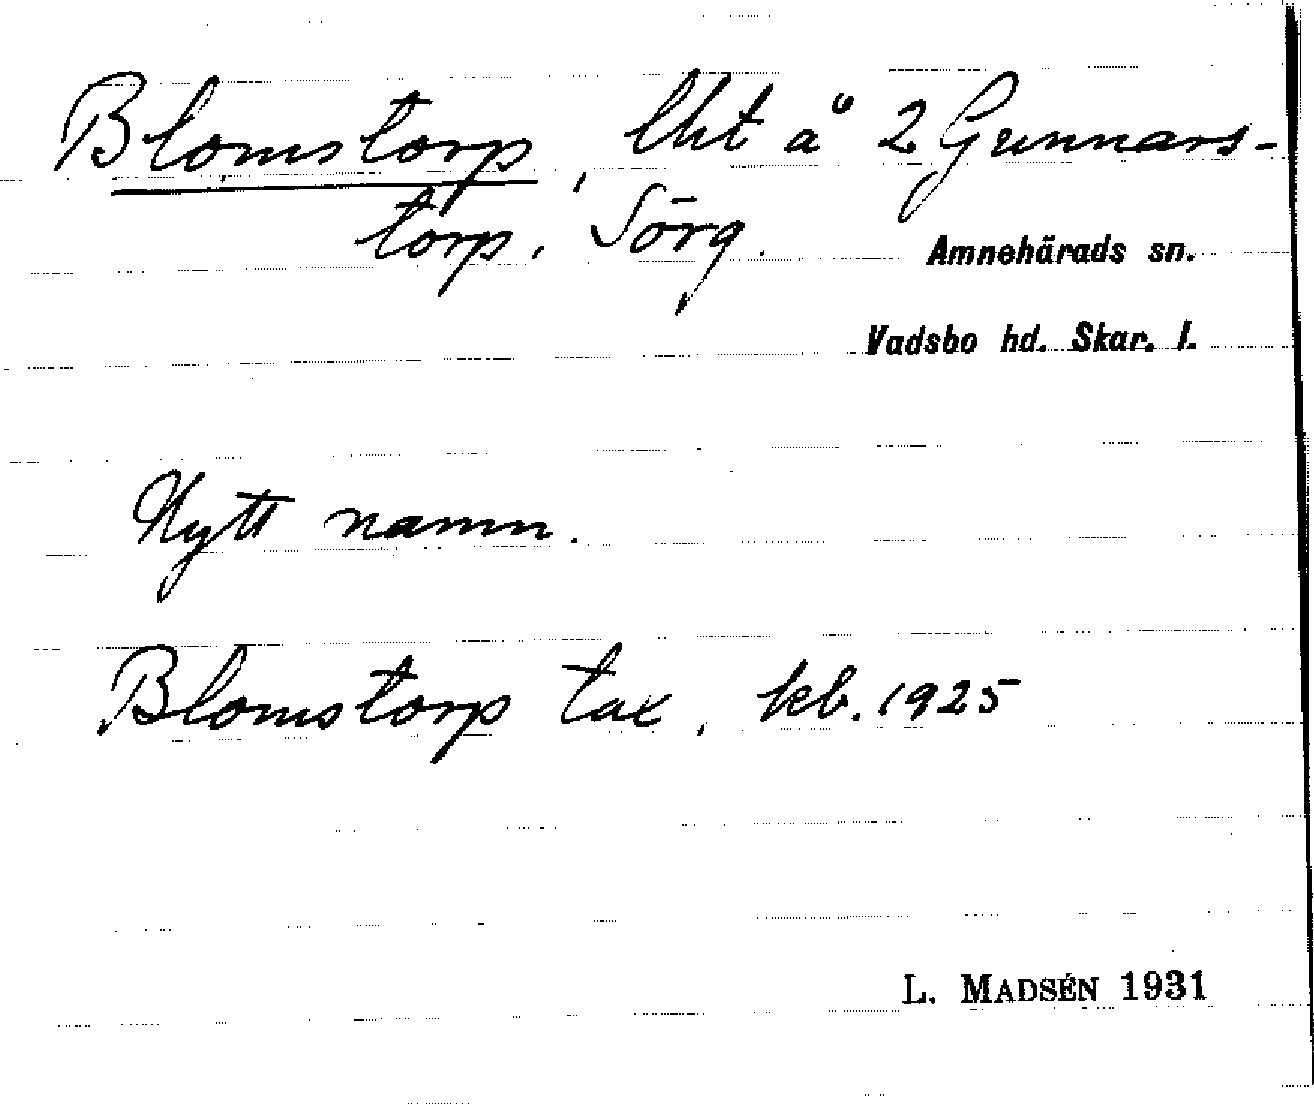 Blomstorp, lht å 2 Gunnars-
torp, Sörg.
Amnehärads sn.
Vadsbo hd. Skar. l.
Nytt namn.
Blomstorp tax, kb. 1925
L. MADSÉN 1931